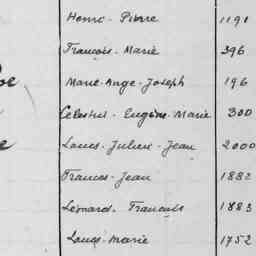 Henri - Pierre 1191
François - Marie 396
Marie-Ange-Joseph 196
Célestin - Eugène-Marie 300
Louis - Julien - Jean 2000
Francis - Jean 1882
Léonard - François 1883
Louis-Marie 1752